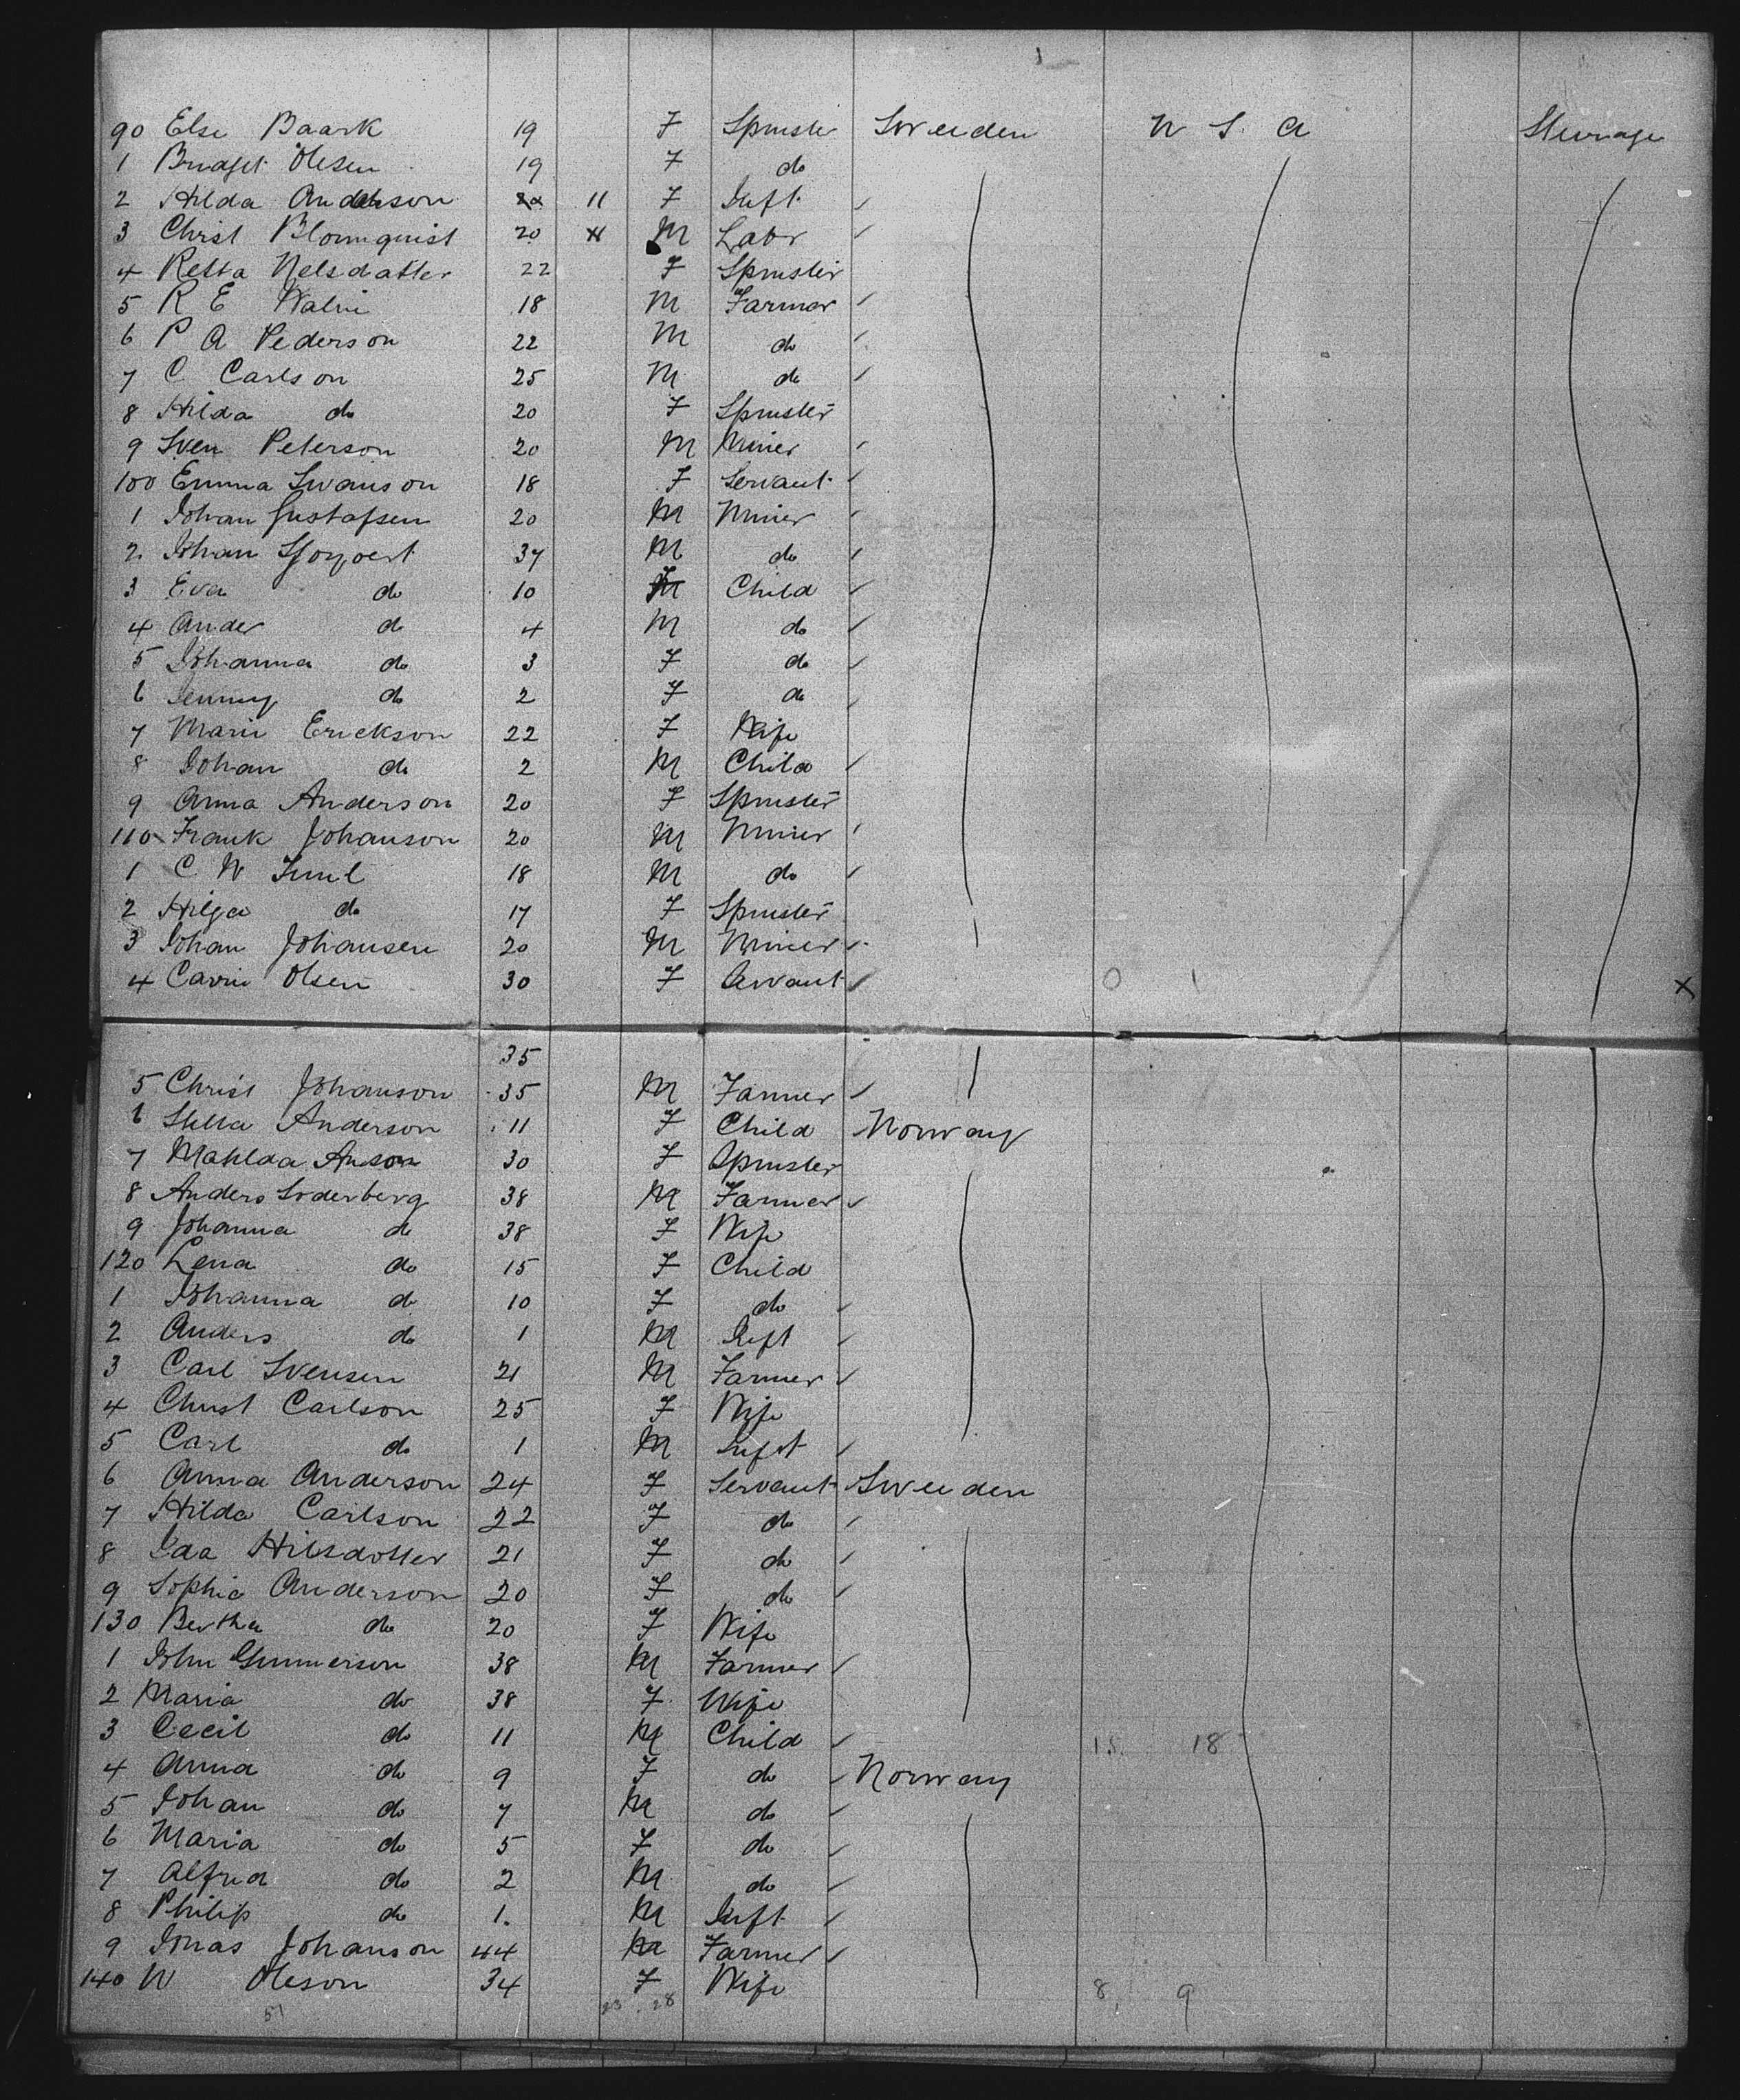 90 Else Baark 19 F Spinster Sweeden U S. A Steerage
1 Bridget Olesen 19 F do
2 Hilda Anderson 11 F Inft
3 Christ Blomquist 20 M Labr
4 Retta Nelsdatter 22 F Spinster
5 R E 18 M Farmer
6 P A Pederson 22 M do
7 C Carlson 25 M do
8 Hilda do 20 F Spinster
9 Sven Peterson 20 M Miner
100 Emma Swanson 18 F Servant
1 Johan Gustafsen 20 M Miner
2 Johan 37 M do
3 Eva do 10 F Child
4 Ander do 4 M do
5 Johanna do 3 F do
6 Jenny do 2 F do
7 Marie Erickson 22 F Wife
8 Johan do 2 M Child
9 Anna Anderson 20 F Spinster
110 Frank Johanson 20 M Miner
1 C W 18 M do
2 Hilga do 17 F Spinster
3 Johan Johansen 20 M Miner
4 Carrie Olsen 30 F Servant 0 1 X
35
5 Christ Johanson 35 M Farmer
6 Anderson 11 F Child Norway
7 Mahlda Anson 30 F Spinster
8 Anders Soderberg 38 M Farmer
9 Johanna do 38 F Wife
120 Lena do 15 F Child
1 Johanna do 10 F do
2 Anders do 1 M Inft
3 Carl Svensen 21 M Farmer
4 Christ Carlson 25 F Wife
5 Carl do 1 M Infst
6 Anna Anderson 24 F Servant Sweeden
7 Hilda Carlson 22 F do
8 Ida Hilsdotter 21 F do
9 Sophie Anderson 20 F do
130 Bertha do 20 F Wife
1 John Gunnerson 38 M Farmer
2 Maria do 38 F Wife
3 Cecil do 11 M Child 15. 18
4 Anna do 9 F do Norway
5 Johan do 7 M do
6 Maria do 5 F do
7 Alfred do 2 M do
8 Philip do 1. M Inft
9 Jonas Johanson 44 M Farmer
140 W Oleson 34 F Wife 8, 9
51 23. 28